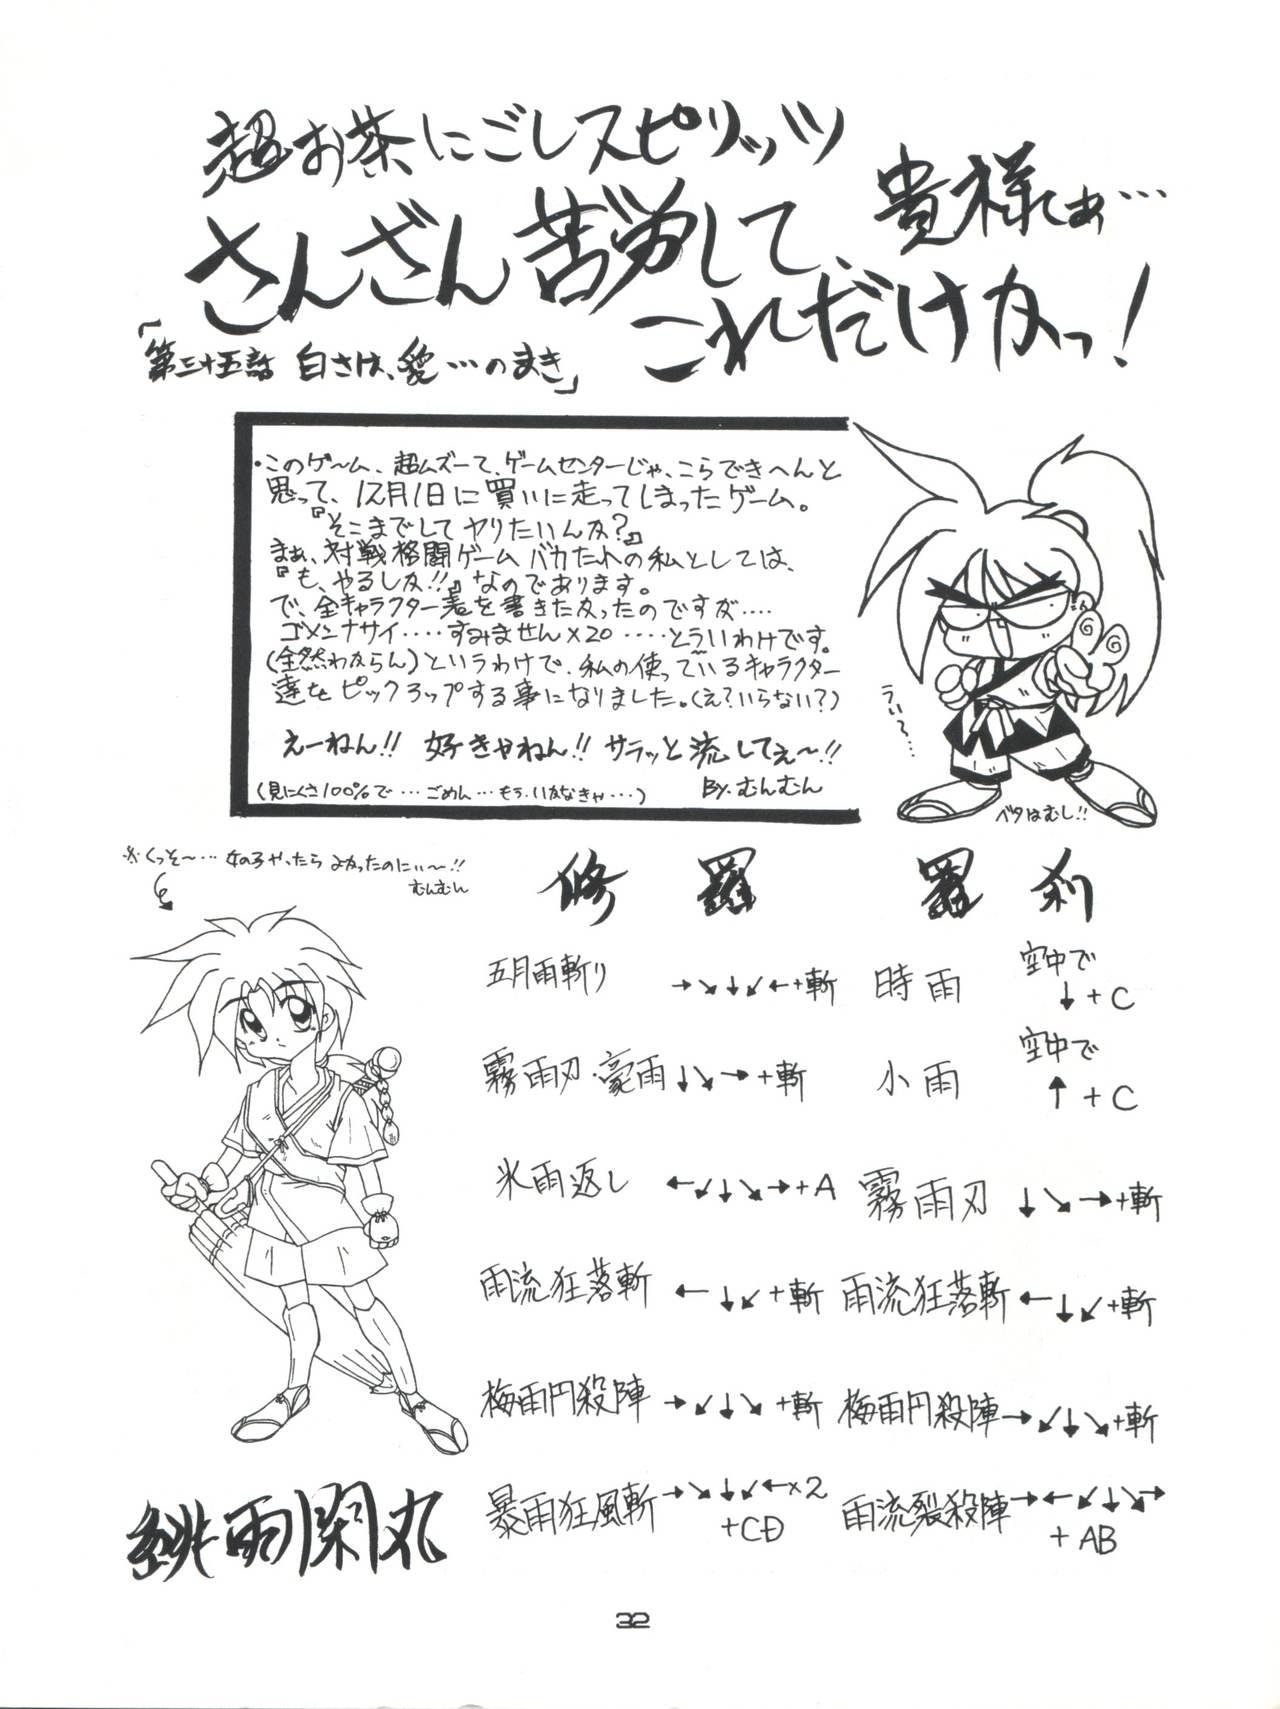 超お茶にごしスピリッツ
貴様しぁ…
さんざん苦労して、
これだけかっ!
「第三十五話 白さは、愛…のまき」
・このゲーム、超ムズーて、ゲームセンターじゃ、こらできへんと
思って、12月1日に買いに走ってしまったゲーム。
『そこまでしてヤりたいんか?』
まぁ、対戦格闘ゲームバカたれの私としては、
『も、やるしか!!』なのであります。
で、全キャラクター表を書きたかったのですが‥‥
ゴメンナサイ‥‥すみません×20‥‥とういわけです。
(全然わからん)というわけで、私の使っているキャラクター
達をピックアップする事になりました。(え?いらない?)
えーねん!! 好きやねん!! サラッと流してぇ〜!!
(見にくさ100%で…ごめん…もう、いかなきゃ…)
By.むんむん
うぃ〜…
ベタはむし!!
※くっそ〜…女の子やったらよかったのにぃ〜!!
むんむん
修羅 羅刹
五月雨斬り →↘↓↙←+斬 時雨 空中で↓+C
霧雨刃・豪雨 ↓↘→+斬 小雨 空中で↑+C
氷雨返し ←↙↓↘→+A 霧雨刃 ↓↘→+斬
雨流狂落斬 ←↓↙+斬 雨流狂落斬 ←↓↙+斬
梅雨円殺陣 →↙↓↘+斬 梅雨円殺陣 →↙↓↘+斬
暴雨狂風斬 →↘↓↙←×2+CD 雨流裂殺陣 →←↙↓↘→+AB
緋雨閑丸
32